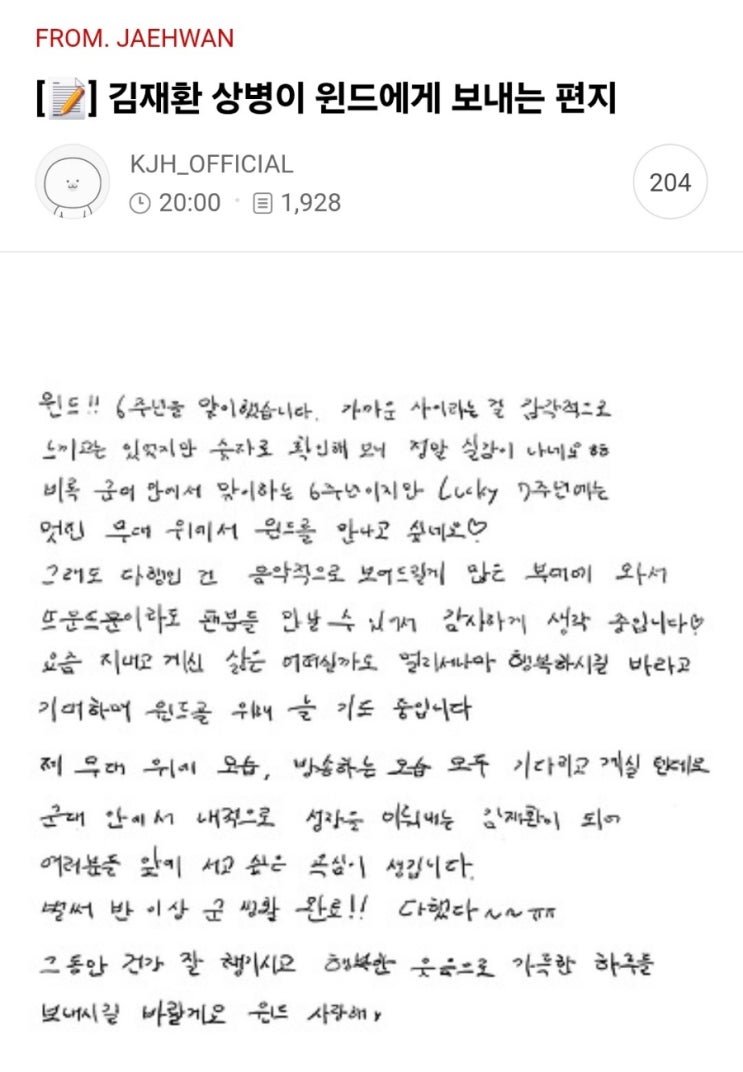 FROM. JAEHWAN
[📝] 김재환 상병이 윈드에게 보내는 편지
KJH_OFFICIAL
20:00 1,928
204
윈드!! 6주년을 맞이했습니다. 가까운 사이라는 걸 감각적으로
느끼고는 있었지만 숫자로 확인해 보니 정말 실감이 나네요 ㅎㅎ
비록 군대 안에서 맞이하는 6주년이지만 Lucky 7주년에는
멋진 무대 위에서 윈드를 만나고 싶네요♡
그래도 다행인 건 음악적으로 보여드릴게 많은 부대에 와서
뜨문뜨문이라도 팬분들 만날 수 있어서 감사하게 생각 중입니다♡
요즘 지내고 계신 삶은 어떠실까도 멀리서나마 행복하시길 바라고
기대하며 윈드를 위해 늘 기도 중입니다
제 무대 위에 모습, 방송하는 모습 모두 기다리고 계실 텐데요
군대 안에서 내적으로 성장을 이뤄내는 김재환이 되어
여러분들 앞에 서고 싶은 욕심이 생깁니다.
벌써 반 이상 군 생활 완료!! 다했다~~ㅠㅠ
그동안 건강 잘 챙기시고 행복한 웃음으로 가득한 하루들
보내시길 바랄게요 윈드 사랑해,